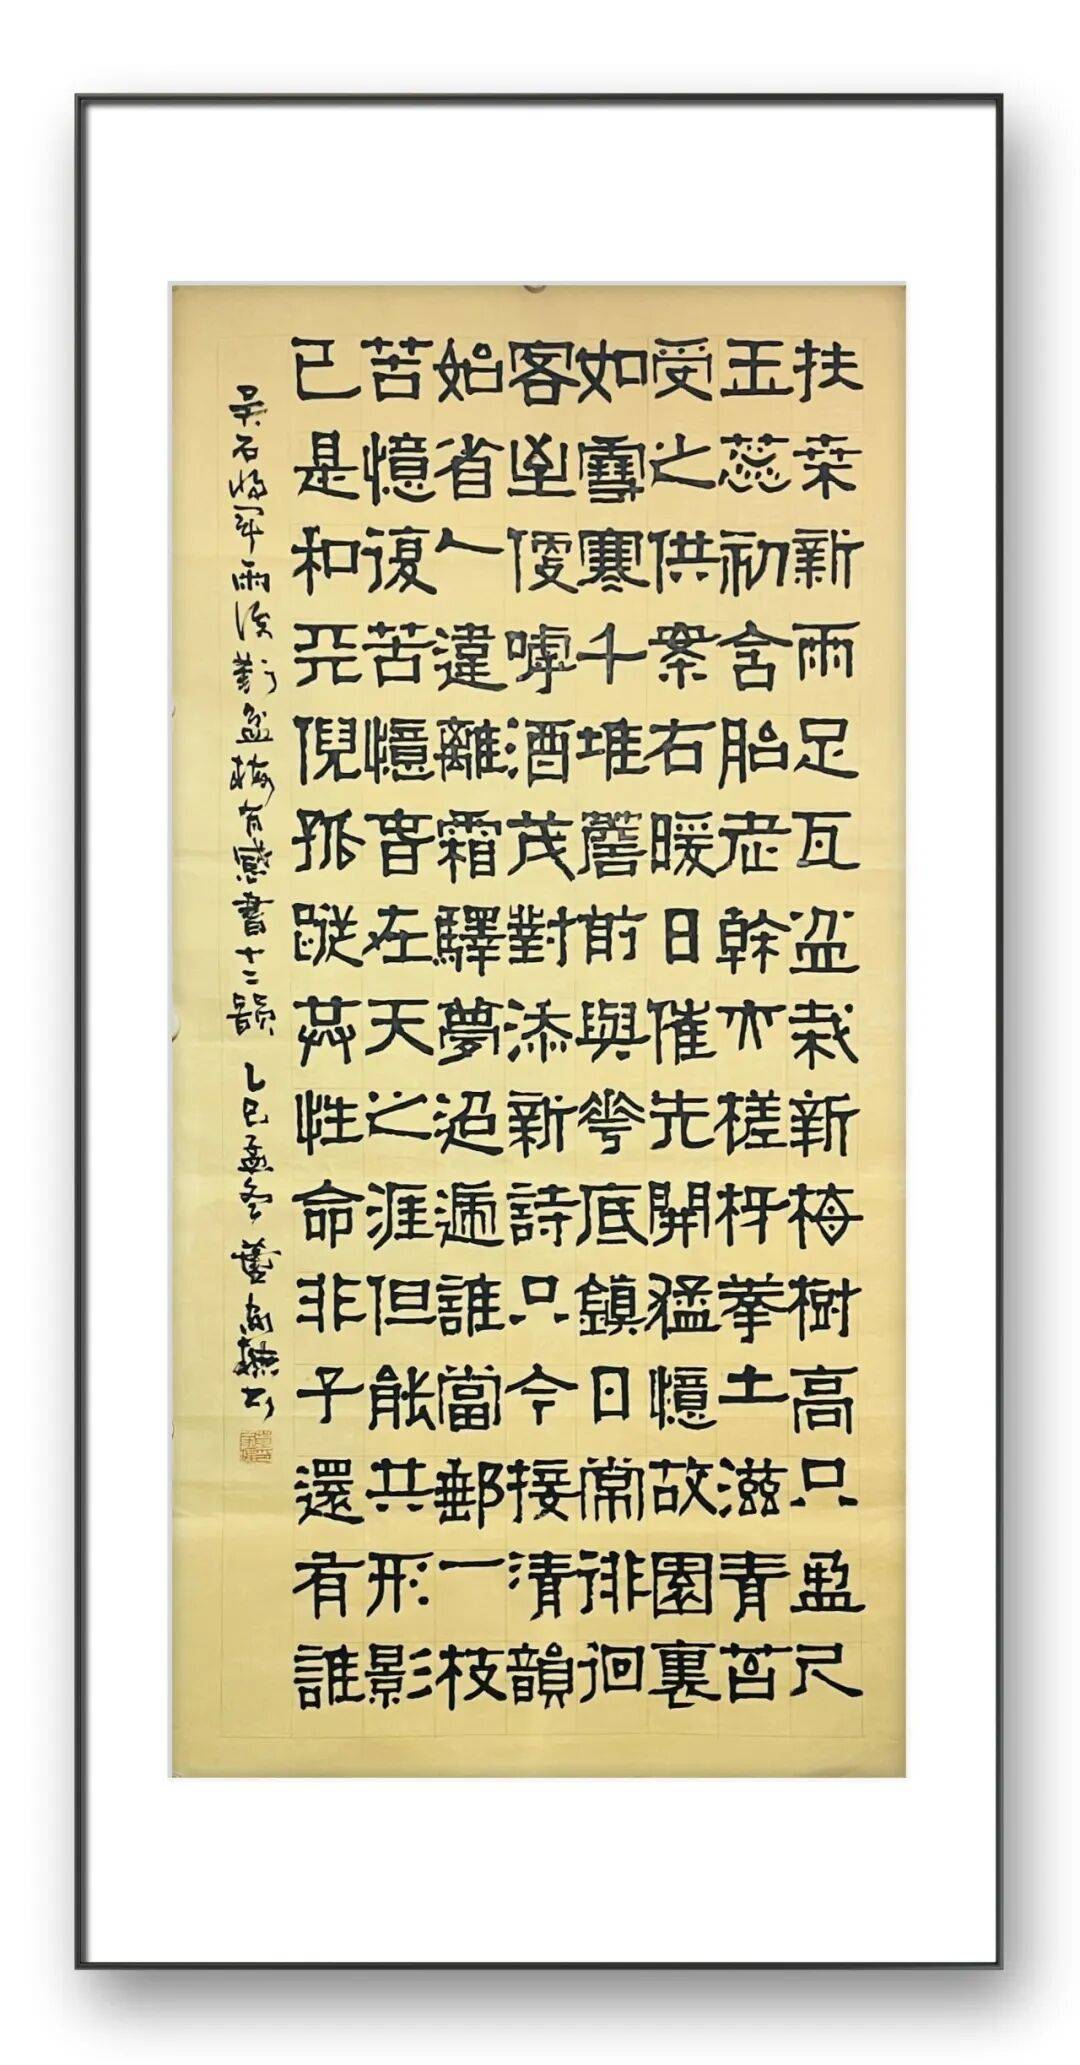 扶桒新雨足瓦盆栽新梅樹高只盈尺
玉蕊初含胎老幹亦槎枒拳土滋青苔
受之供案右暖日催先開猛憶故園裏
如雪寒千堆薝前與華底鎮日常徘徊
客至便嘑酒茂對添新詩只今接清韻
始省人違離霜驛夢迢遞誰當郵一枝
苦憶復苦憶音在天之涯但能共形影
已是和天倪孤蹤共性命非子還有誰
吳石將軍雨後對盆梅有感書十二韻 乙巳孟冬